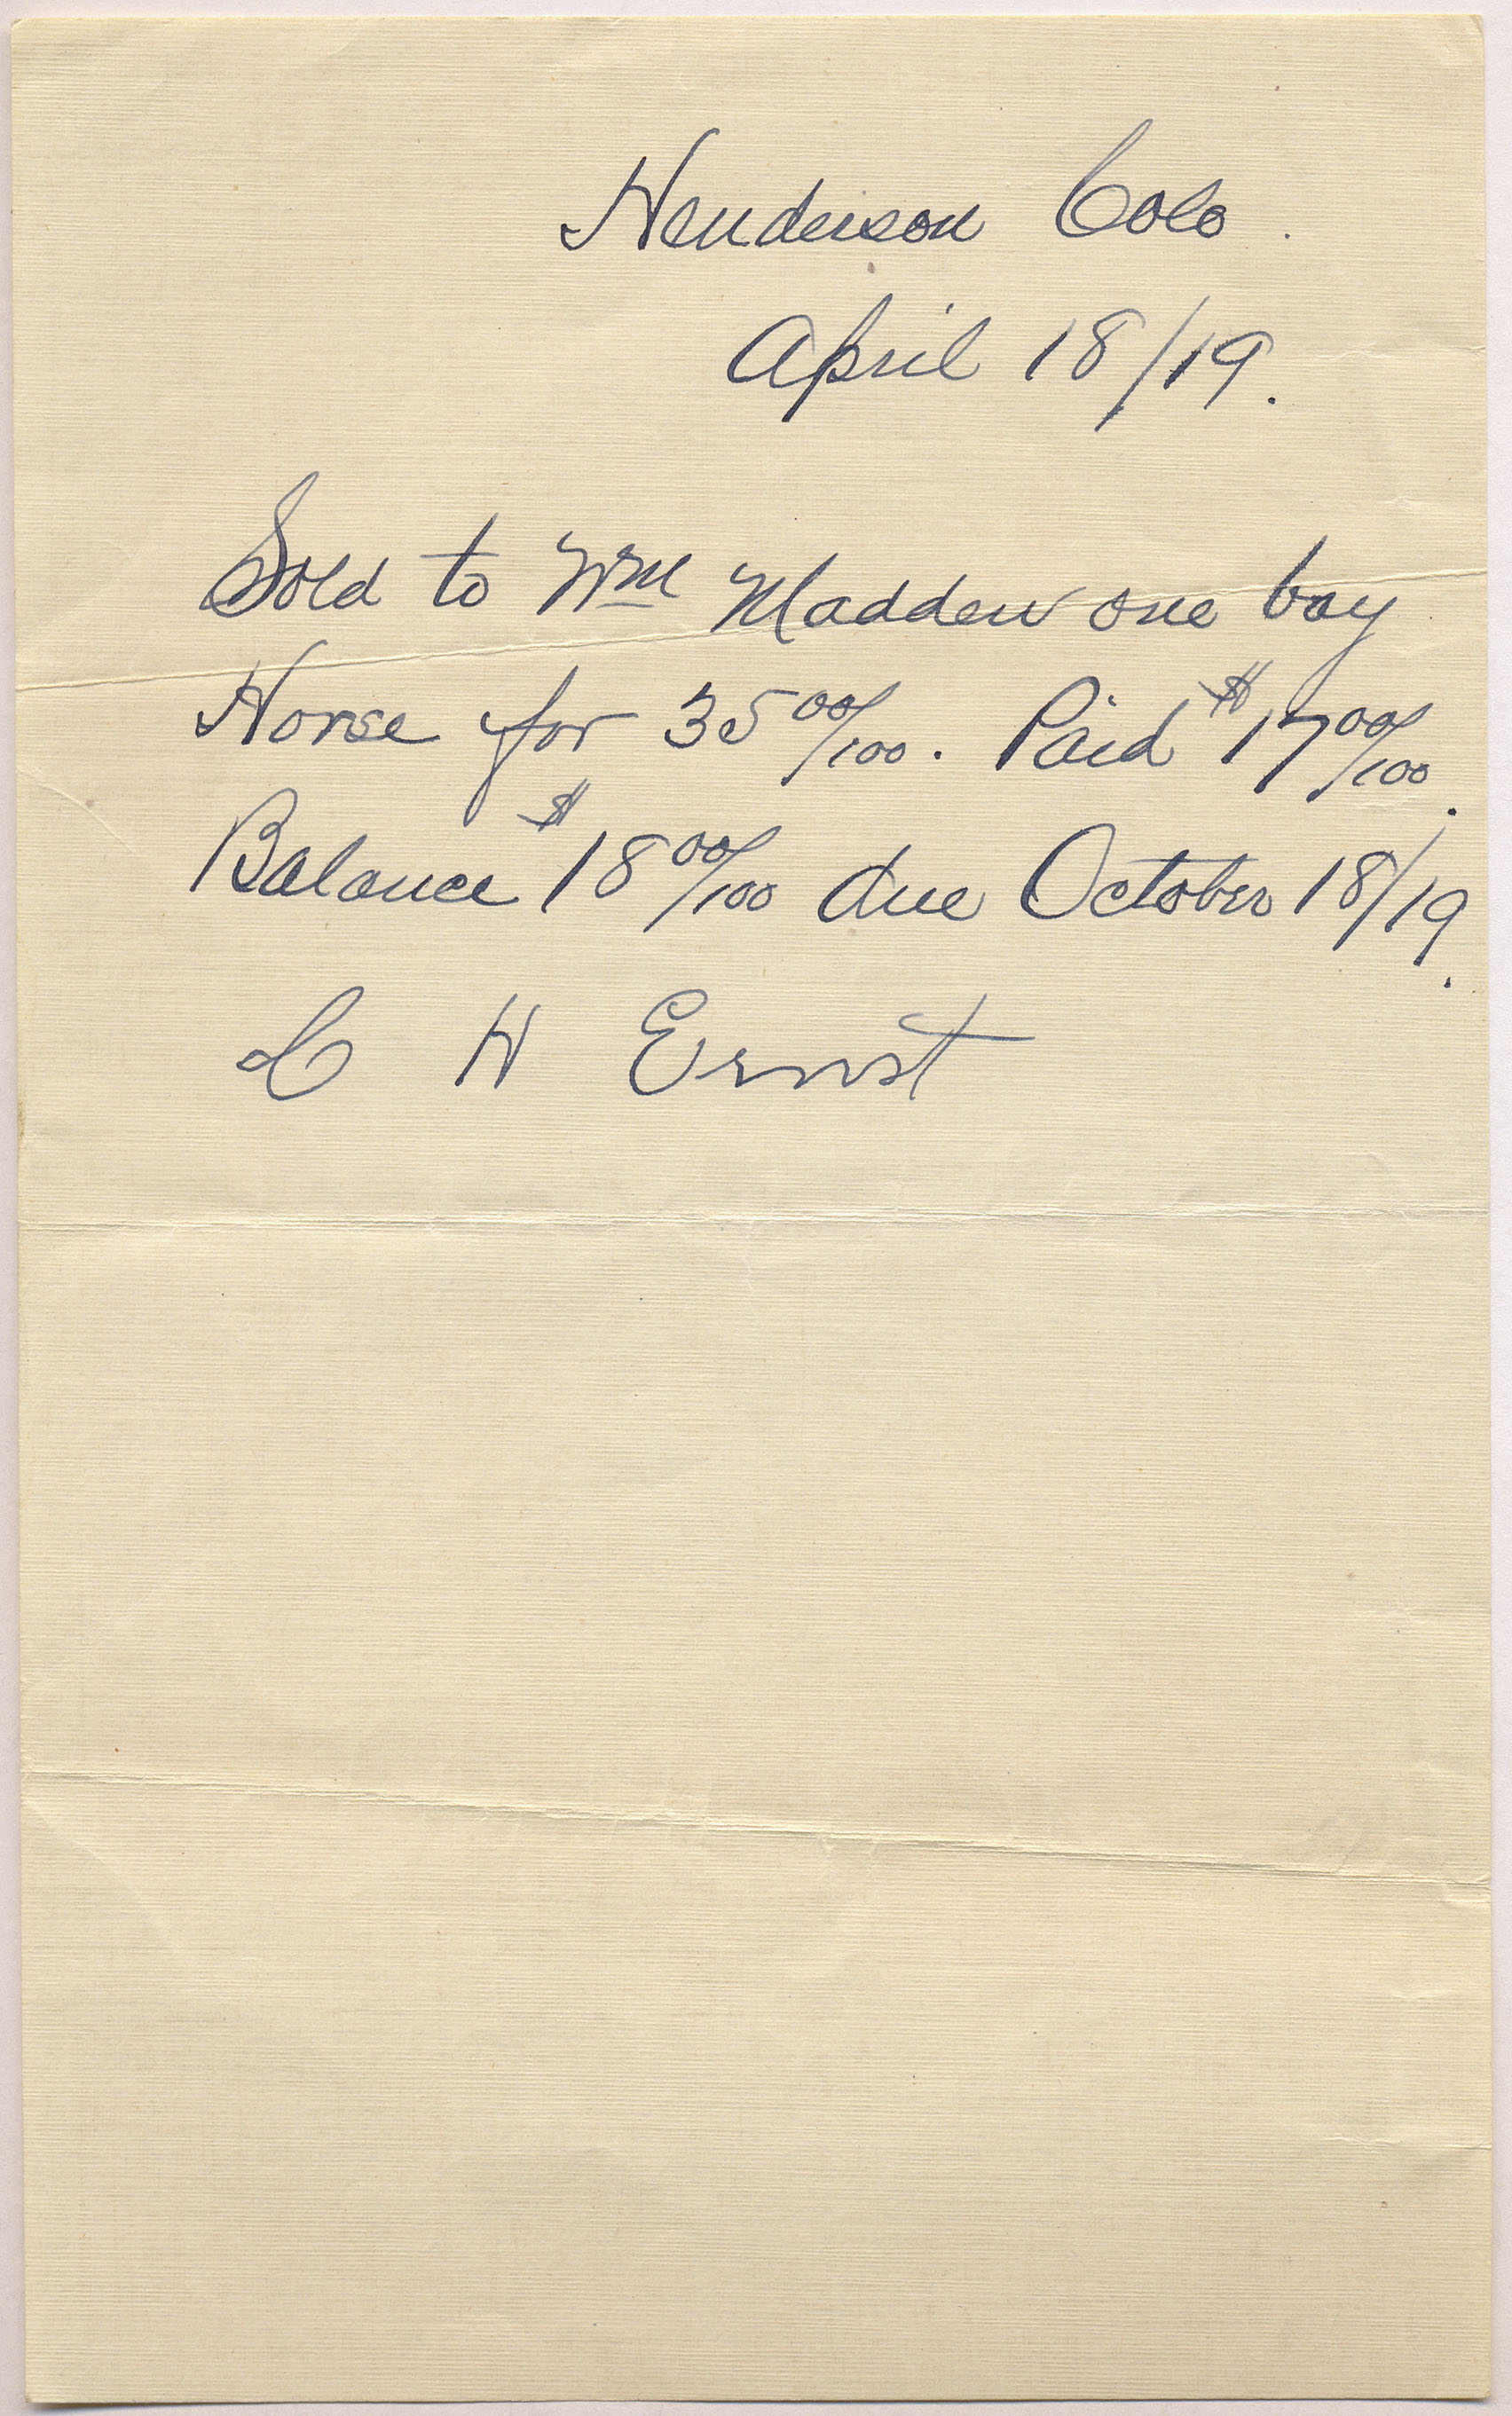 Henderson Colo.
April 18/19.
Sold to Wm Madden one bay
Horse for 35 00/100. Paid $17 00/100.
Balance $18 00/100 due October 18/19.
C H Ernst